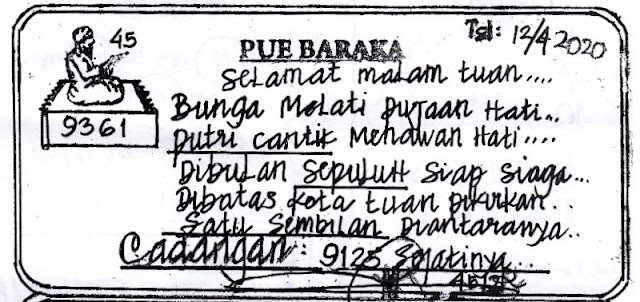 45
9361
PUE BARAKA
Tgl: 12/4 2020
Selamat malam tuan....
Bunga Melati pujaan Hati...
putri cantik Menawan Hati....
Dibulan sepuluh siap siaga...
Dibatas kota tuan pikirkan..
Satu sembilan Diantaranya..
Cadangan: 9125 Sejatinya...